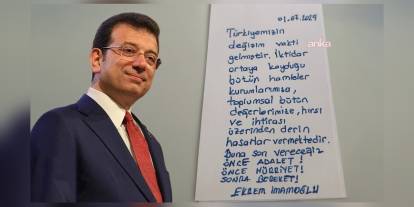 01.07.2024
anka
Türkiyemizin
değişim vakti
gelmiştir. İktidar
ortaya koyduğu
bütün hamleler
kurumlarımıza,
toplumsal bütün
değerlerimize, hırsı
ve ihtirası
üzerinden derin
hasarlar vermektedir.
Buna son vereceğiz
ÖNCE ADALET!
ÖNCE HÜRRİYET!
SONRA BEREKET!
EKREM İMAMOĞLU